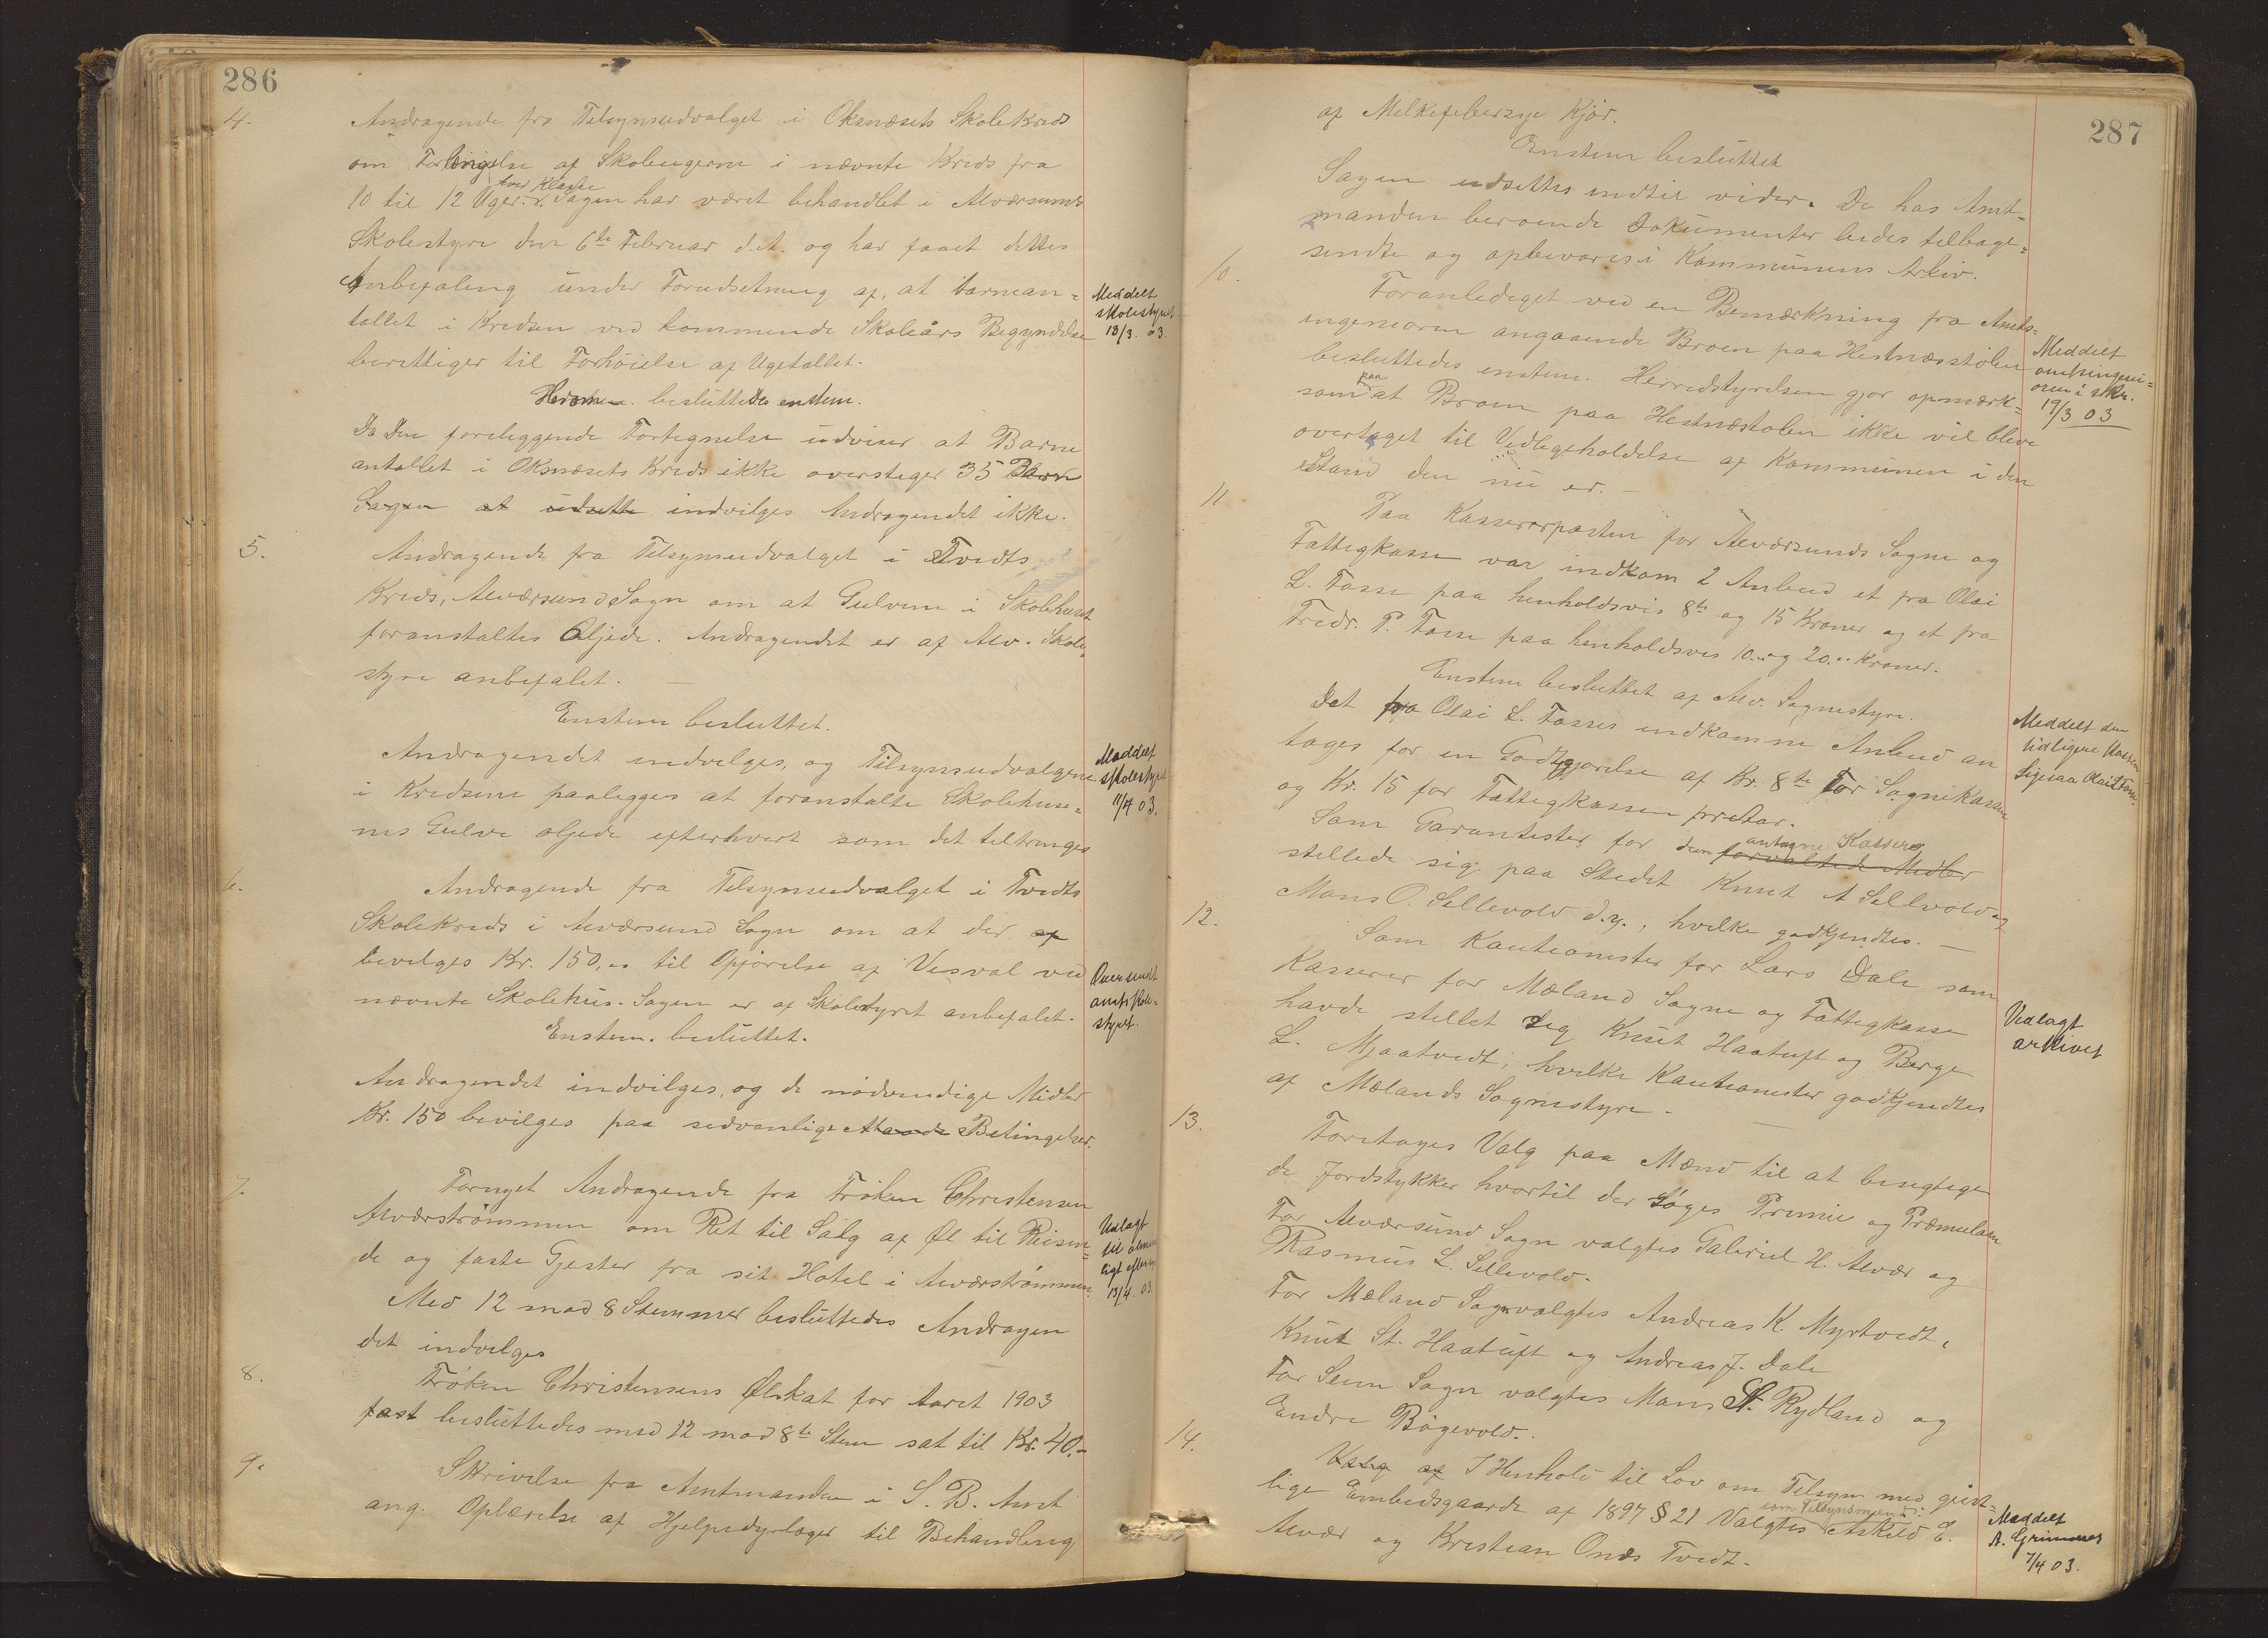 286
4. Andragende fra Tilsynsudvalget i Oksnæsets Skolekreds
om Forlængelse af Skoleugerne i nævnte Kreds fra
hver Klasse
10 til 12 Uger. Sagen har været behandlet i Alværsunds
Skolestyre den 6te Februar d.A. og har faaet dettes
Anbefaling under Forudsetning af, at barnean-
tallet i Kredsen ved kommende Skoleaars Begyndelse
berettiger til Forhöielse af Ugetallet.
Meddelt
skolestyret
13/3. 03.
Herom besluttedes enstem.
Da den foreliggende Fortegnelse udviser at Barne
antallet i Oksnæsets Kreds ikke oversteger 35 Børn
Sagen at udsette indvilges Andragendet ikke.
5. Andragende fra Tilsynsudvalget i Tvedts
Kreds, Alværsund Sogn om at Gulvene i Skolehuset
foranstaltes Oljede. Andragendet er af Alv. Skole-
styre anbefalet. —
Enstem besluttet.
Andragendet indvilges, og Tilsynsudvalgene
i Kredsene paalegges at foranstalte Skolehuse-
nes Gulve oljede efterhvert som det tiltrenges
Meddelt
skolestyret
11/4 03.
6. Andragende fra Tilsynsudvalget i Tvedts
Skolekreds i Alværsund Sogn om at der af
bevilges Kr. 150,00 til Opförelse af Vesval ved
nævnte Skolehus. Sagen er af Skolestyret anbefalet.
Oversendt
amtsskole-
styret.
Enstem. besluttet.
Andragendet indvilges, og de nödvendige Midler
Kr. 150 bevilges paa sedvanlige Betingelser.
7. Fornyet Andragende fra Fröken Christensen
Alværströmmen om Ret til Salg af Øl til Reisen-
de og faste Gjester fra sit Hotel i Alværströmmen.
Udlagt
til almin
ligt eftersyn
13/4. 03.
Med 12 mod 8 Stemmer besluttedes Andragen
det indvilges —
8. Fröken Christensens Ølskat for Aaret 1903
fast besluttedes med 12 mod 8te Stem sat til Kr. 40.-
9. Skrivelse fra Amtmanden i S. B. Amt
ang. Oplærelse af Hjelpedyrlæger til Behandling
287
af Melkefebersyge Kjör.
Enstem besluttet
Sagen udsettes indtil videre. De hos Amt-
manden beroende Dokumenter bedes tilbage-
sendte og opbevares i Kommunens Arkiv.
10. Foranlediget ved en Bemærkning fra Amts-
ingeniøren angaaende Broen paa Hestnæsstølen
besluttedes enstem. Herredstyrelsen gjør opmærk-
paa
som at Broen paa Hestnæstolen ikke vil bleve
overtaget til Vedlegeholdelse af Kommunen i den
Stand den nu er. —
Meddelt
amtsingeni-
øren i skr.
19/3 03
11 Paa Kassererposten for Alværsunds Sogne og
Fattegkasse var indkom 2 Anbud et fra Olai
L. Fosse paa henholdsvis 8te og 15 Kroner og et fra
Fredr. P. Fosse paa henholdsvis 10.. og 20.. Kroner.
Enstem besluttet af Alv. Sognestyre.
Det fra Olai L. Fosses indkomne Anbud an
tages for en Godtgjorelse af Kr. 8te for Sognekassen
og Kr. 15 for Fattegkassen pr Aar.
Meddelt den
tidligere Kasserer
Ligesaa Olai Fosse.
antagne Kasserer
Som Garantister for den forvaltede Midler
stillede sig paa Stedet Knut A Sellvold og
Mons O. Sellevold d.y., hvilke godkjendtes. —
12. Som Kautionister for Lars Dale som
Kasserer for Mæland Sogne og Fattegkasse
havde stellet seg Knut Haatuft og Berge
L. Mjaatvedt, hvilke Kautionister godkjendtes
af Mælands Sognestyre —
Vedlagt
arkivet
13. Foretages Valg paa Mænd til at besegtege
de Jordstykker hvortil der söges Premie og Præmielaan
For Alværsund Sogn valgtes Gabriel H. Alvær og
Rasmus L. Sellevold.
For Mæland Sogn valgtes Andreas K. Myrtvedt,
Knut St. Haatuft og Andreas J. Dale
For Seim Sogn valgtes Mons St. Rydland og
Endre Bögevold.
14. Valg af I Henhold til Lov om Tilsyn med geist-
lige Embedsgaarde af 1897 § 21 Valgtes Askild E.
som Tilsynsmænd:
Alvær og Kristian Onæs Tvedt.
Meddelt
A. Grimnes
7/4 03.